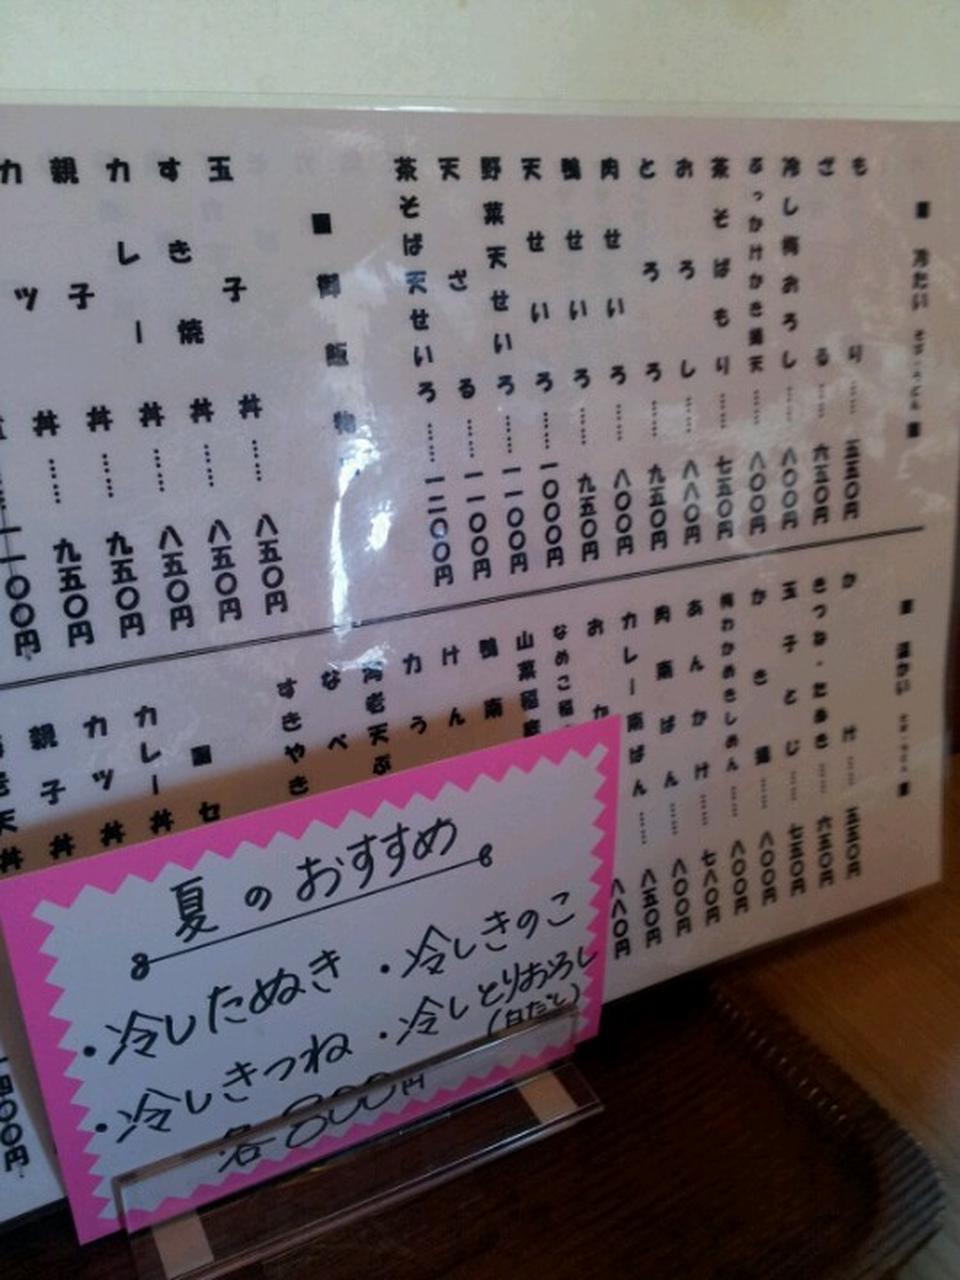 ■ 冷たい そば・うどん ■
もり……五五〇円
ざる……六五〇円
冷し梅おろし……八〇〇円
ぶっかけかき揚天……八〇〇円
茶そばもり……七五〇円
おろし……八八〇円
とろろ……九五〇円
肉せいろ……八〇〇円
鴨せいろ……九五〇円
天せいろ……一〇〇〇円
野菜天せいろ……一一〇〇円
天ざる……一一〇〇円
茶そば天せいろ……一二〇〇円
■ 御飯物
玉子丼……八五〇円
すき焼丼……八五〇円
カレー丼……八五〇円
親子丼……九五〇円
カツ丼……九五〇円
一一〇〇円
■ 温かい そば・うどん ■
かけ……五五〇円
きつね・たぬき……六五〇円
玉子とじ……七五〇円
かき揚……八〇〇円
梅わかめきしめん……八〇〇円
あんかけ……七八〇円
肉南ばん……八〇〇円
カレー南ばん……八五〇円
おか
八八〇円
なめこ
山菜
鴨南
けん
力う
海老天ぷ
なべ
すきやき
■ セ
カレー丼
カツ丼
親子丼
老天丼
四〇〇円
夏のおすすめ
・冷したぬき
・冷しきのこ
・冷しきつね
・冷しとりおろし
(白だし)
各800円